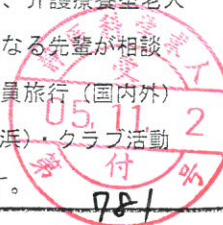 、介護療養型老人
なる先輩が相談
員旅行(国内外)
浜)・クラブ活動
。
受
05.11. 2
第 付 号
781